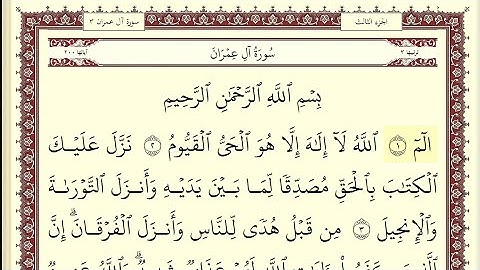 الجزء الثالث
سورة آل عمران ٣
ترتيبها ٣
سُورَةُ آلِ عِمْرَانَ
آياتها ٢٠٠
بِسْمِ ٱللَّهِ ٱلرَّحْمَٰنِ ٱلرَّحِيمِ
الٓمٓ ١ ٱللَّهُ لَآ إِلَٰهَ إِلَّا هُوَ ٱلْحَىُّ ٱلْقَيُّومُ ٢ نَزَّلَ عَلَيْكَ
ٱلْكِتَٰبَ بِٱلْحَقِّ مُصَدِّقًا لِّمَا بَيْنَ يَدَيْهِ وَأَنزَلَ ٱلتَّوْرَىٰةَ
وَٱلْإِنجِيلَ ٣ مِن قَبْلُ هُدًى لِّلنَّاسِ وَأَنزَلَ ٱلْفُرْقَانَ ۗ إِنَّ